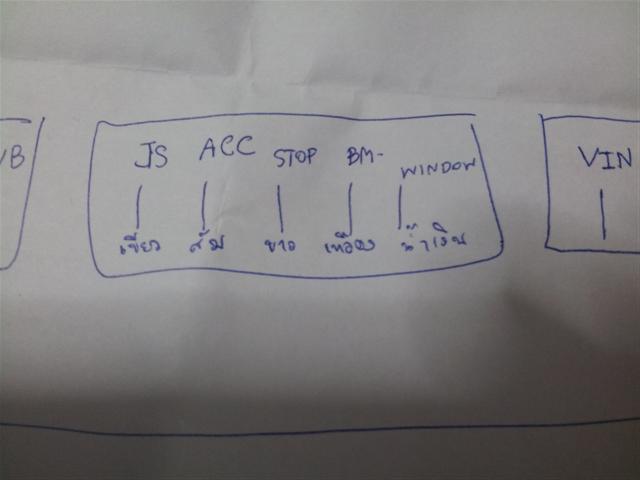 VB JS ACC STOP BM- WINDOW VIN
เขียว ส้ม ขาว เหลือง น้ำเงิน